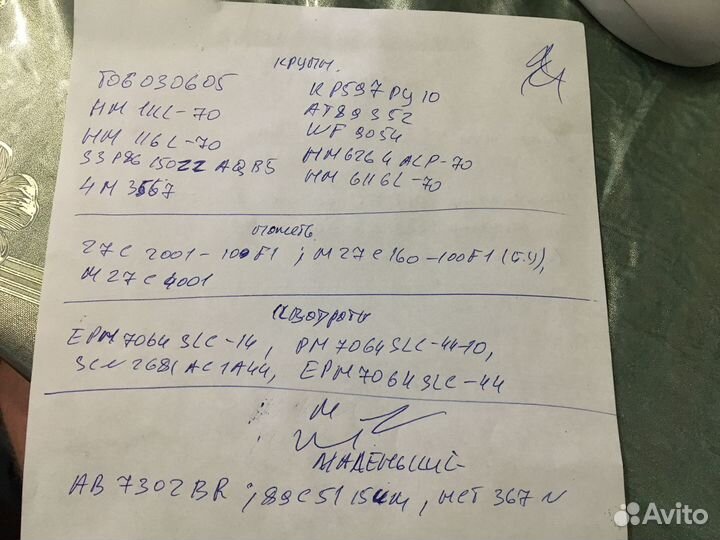 Крупы.
T06030605
НМ 111L-70
НМ 116L-70
93P86 15022 AQB5
4M 3567
КР597 РУ10
AT89352
WF 9054
НМ6264 ALP-70
НМ 6116L-70
память
27C 2001-100F1 ; M27C160-100F1 (б.у),
M27C4001
квадраты
EPM7064 SLC-14, PM 7064SLC-44-10,
SCN2681AC1A44, EPM7064SLC-44
Маленький
AB 7302BR ; 89C51
Avito